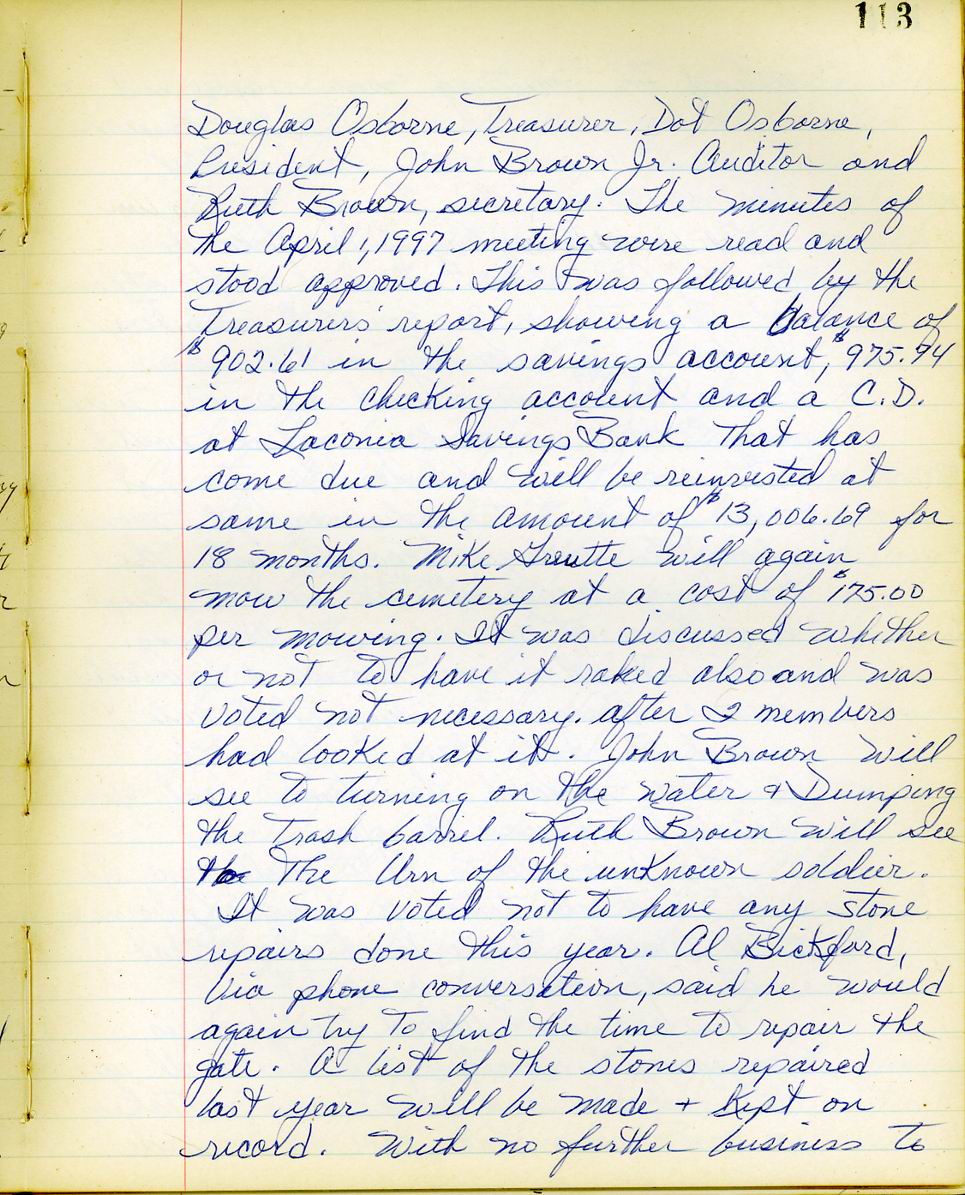 113
Douglas Osborne, Treasurer, Dot Osborne,
President, John Brown Jr. Auditor and
Ruth Brown, secretary. The minutes of
the April 1, 1997 meeting were read and
stood approved. This was followed by the
Treasurers' report, showing a balance of
$902.61 in the savings account, $975.74
in the checking account and a C.D.
at Laconia Savings Bank that has
come due and will be reinvested at
same in the amount of $13,006.69 for
18 months. Mike will again
mow the cemetery at a cost of $175.00
per mowing. It was discussed whether
or not to have it raked also and was
voted not necessary. after 2 members
had looked at it. John Brown will
see to turning on the water & Dumping
the trash barrel. Ruth Brown will see
to The Urn of the unknown soldier.
It was voted not to have any stone
repairs done this year. Al Bickford,
via phone conversation, said he would
again try to find the time to repair the
gate. A list of the stones repaired
last year will be made + kept on
record. With no further business to